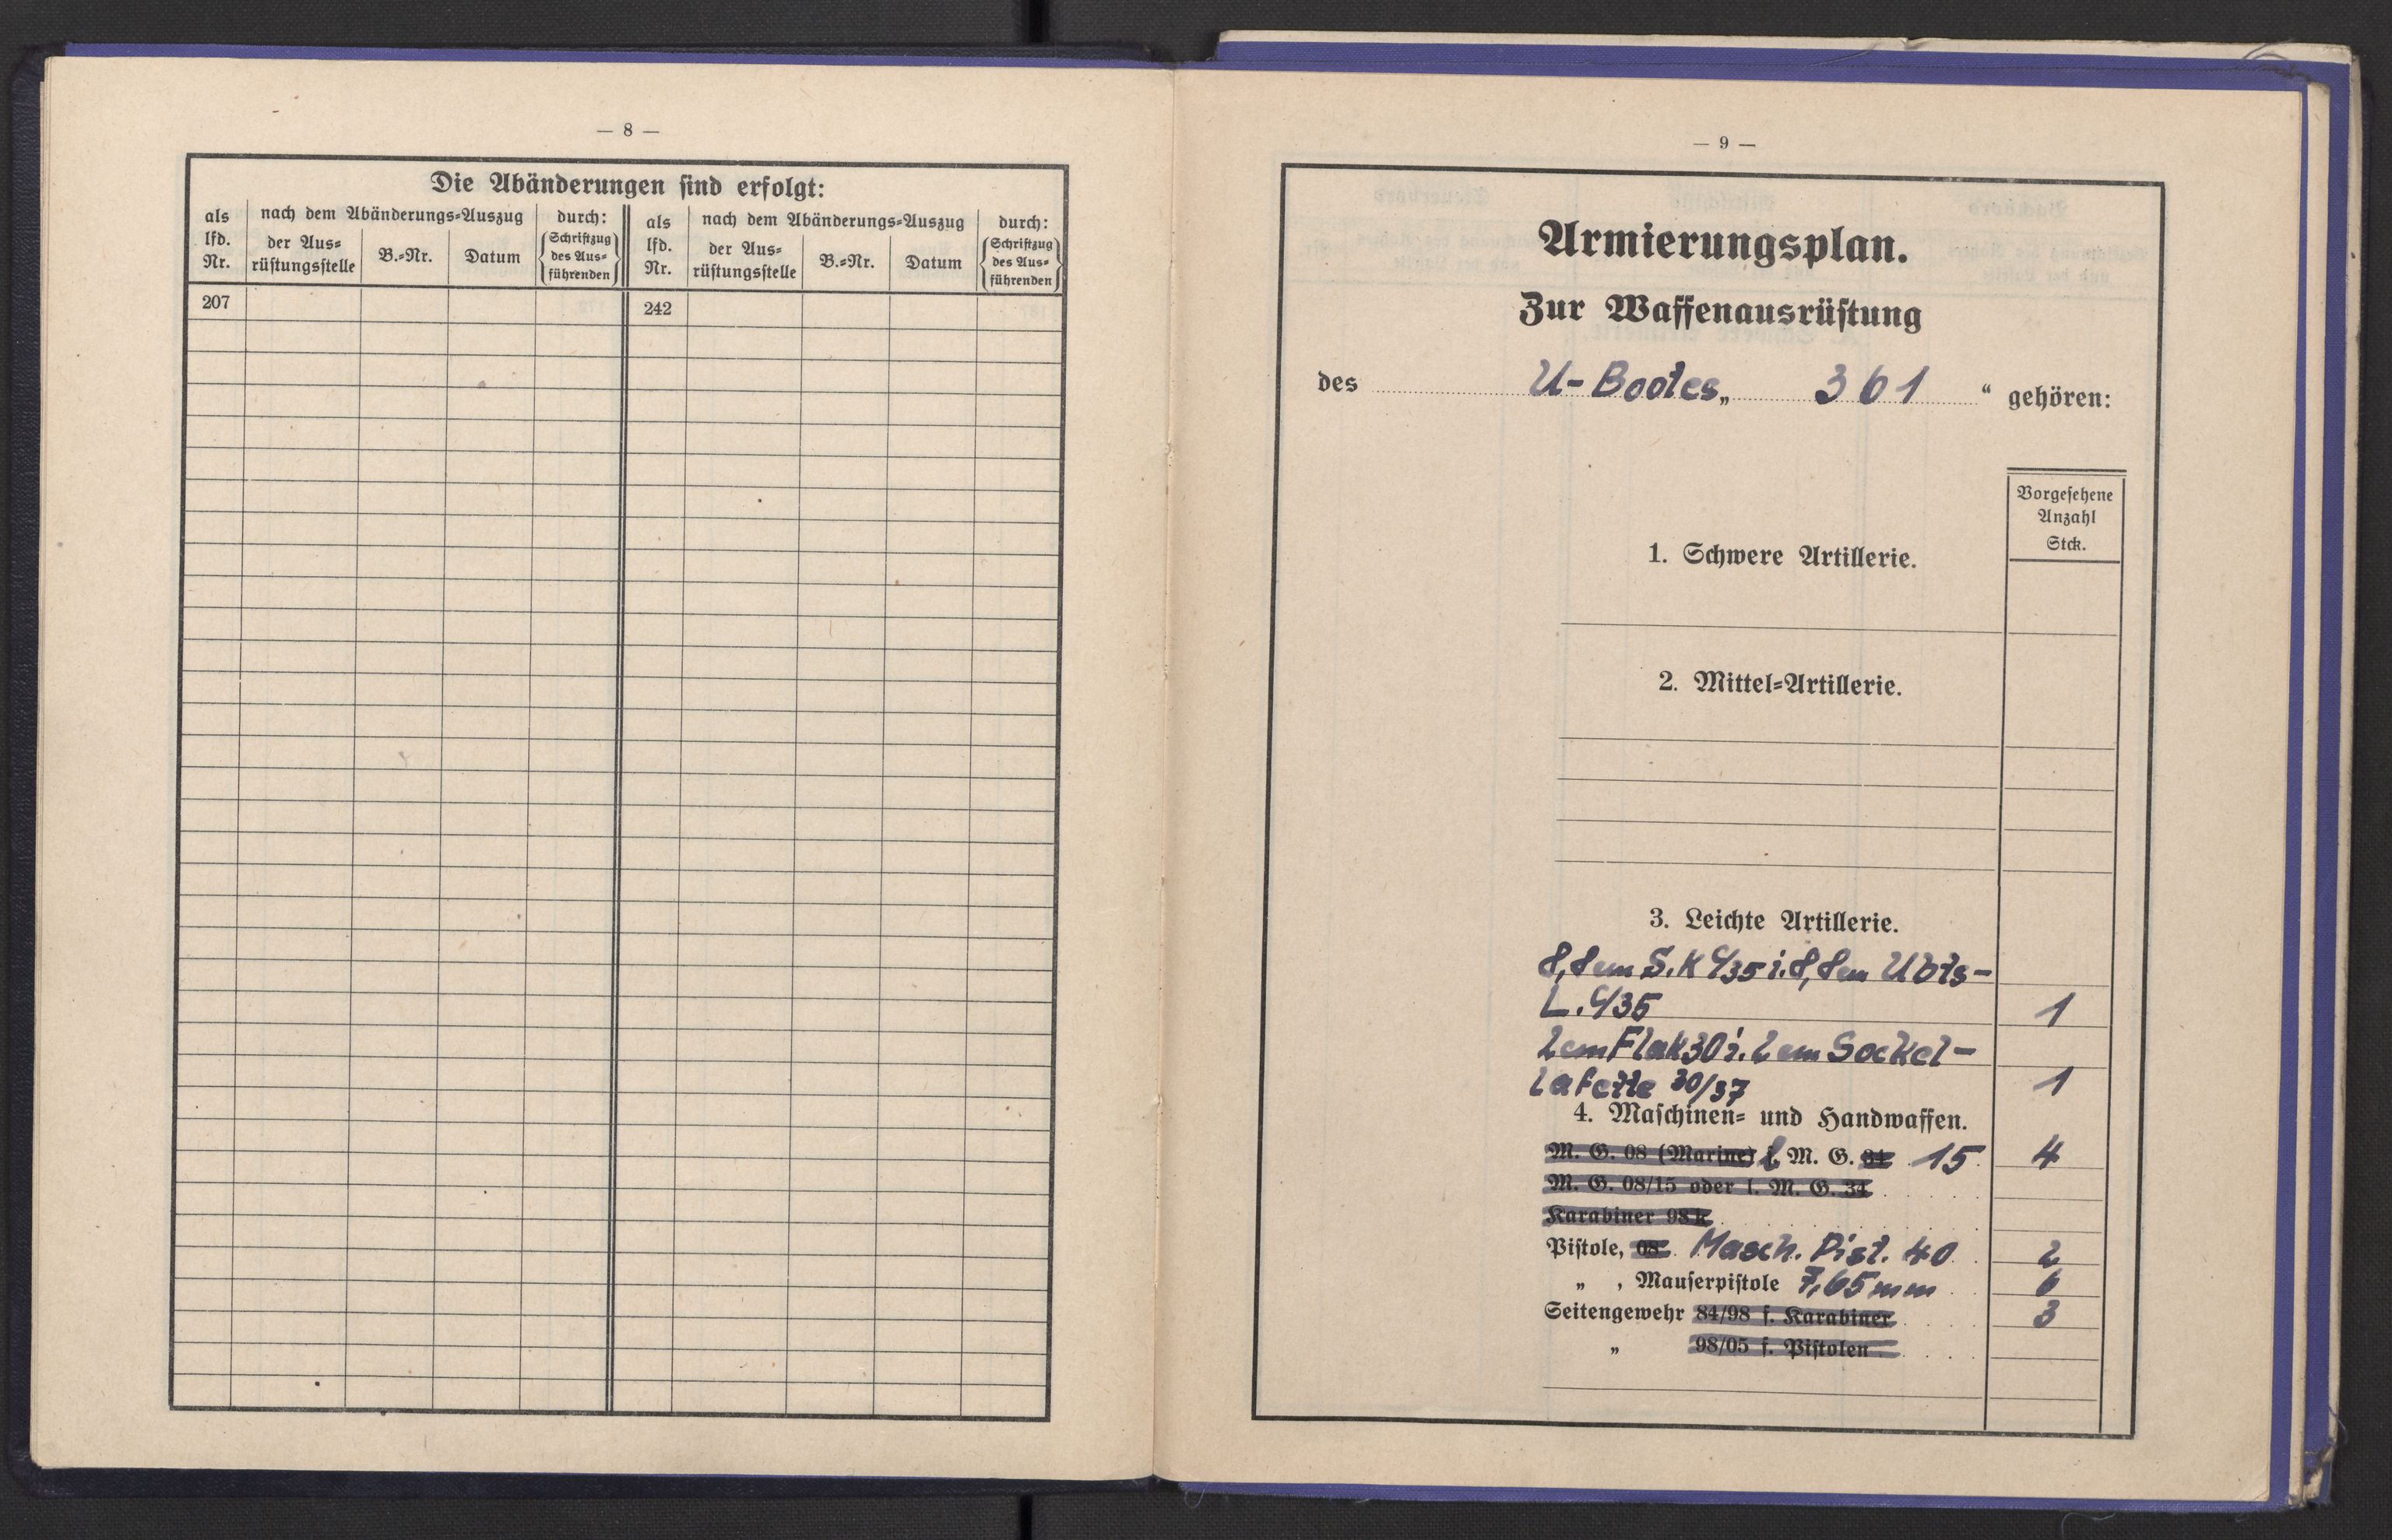 — 8 —
Die Abänderungen sind erfolgt:
als lfd. Nr. nach dem Abänderungs=Auszug durch: als lfd. Nr. nach dem Abänderungs=Auszug durch:
der Aus=rüstungsstelle B.=Nr. Datum (Schriftzug des Aus=führenden) der Aus=rüstungsstelle B.=Nr. Datum (Schriftzug des Aus=führenden)
207 242
— 9 —
Armierungsplan.
Zur Waffenausrüstung
des U-Bootes „ 361 “ gehören:
Vorgesehene
Anzahl
Stck.
1. Schwere Artillerie.
2. Mittel=Artillerie.
3. Leichte Artillerie.
8,8 cm S.K C/35 i. 8,8 cm Ubts-
L. C/35 1
2 cm Flak 30 i. 2 cm Sockel-
lafette 30/37 1
4. Maschinen= und Handwaffen.
M. G. 08 (Marine) l. M. G. 34 15 4
M. G. 08/15 oder l. M. G. 34
Karabiner 98k
Pistole, 08 Masch. Pist. 40 2
„ , Mauserpistole 7,65 mm 6
Seitengewehr 84/98 f. Karabiner 3
„ 98/05 f. Pistolen